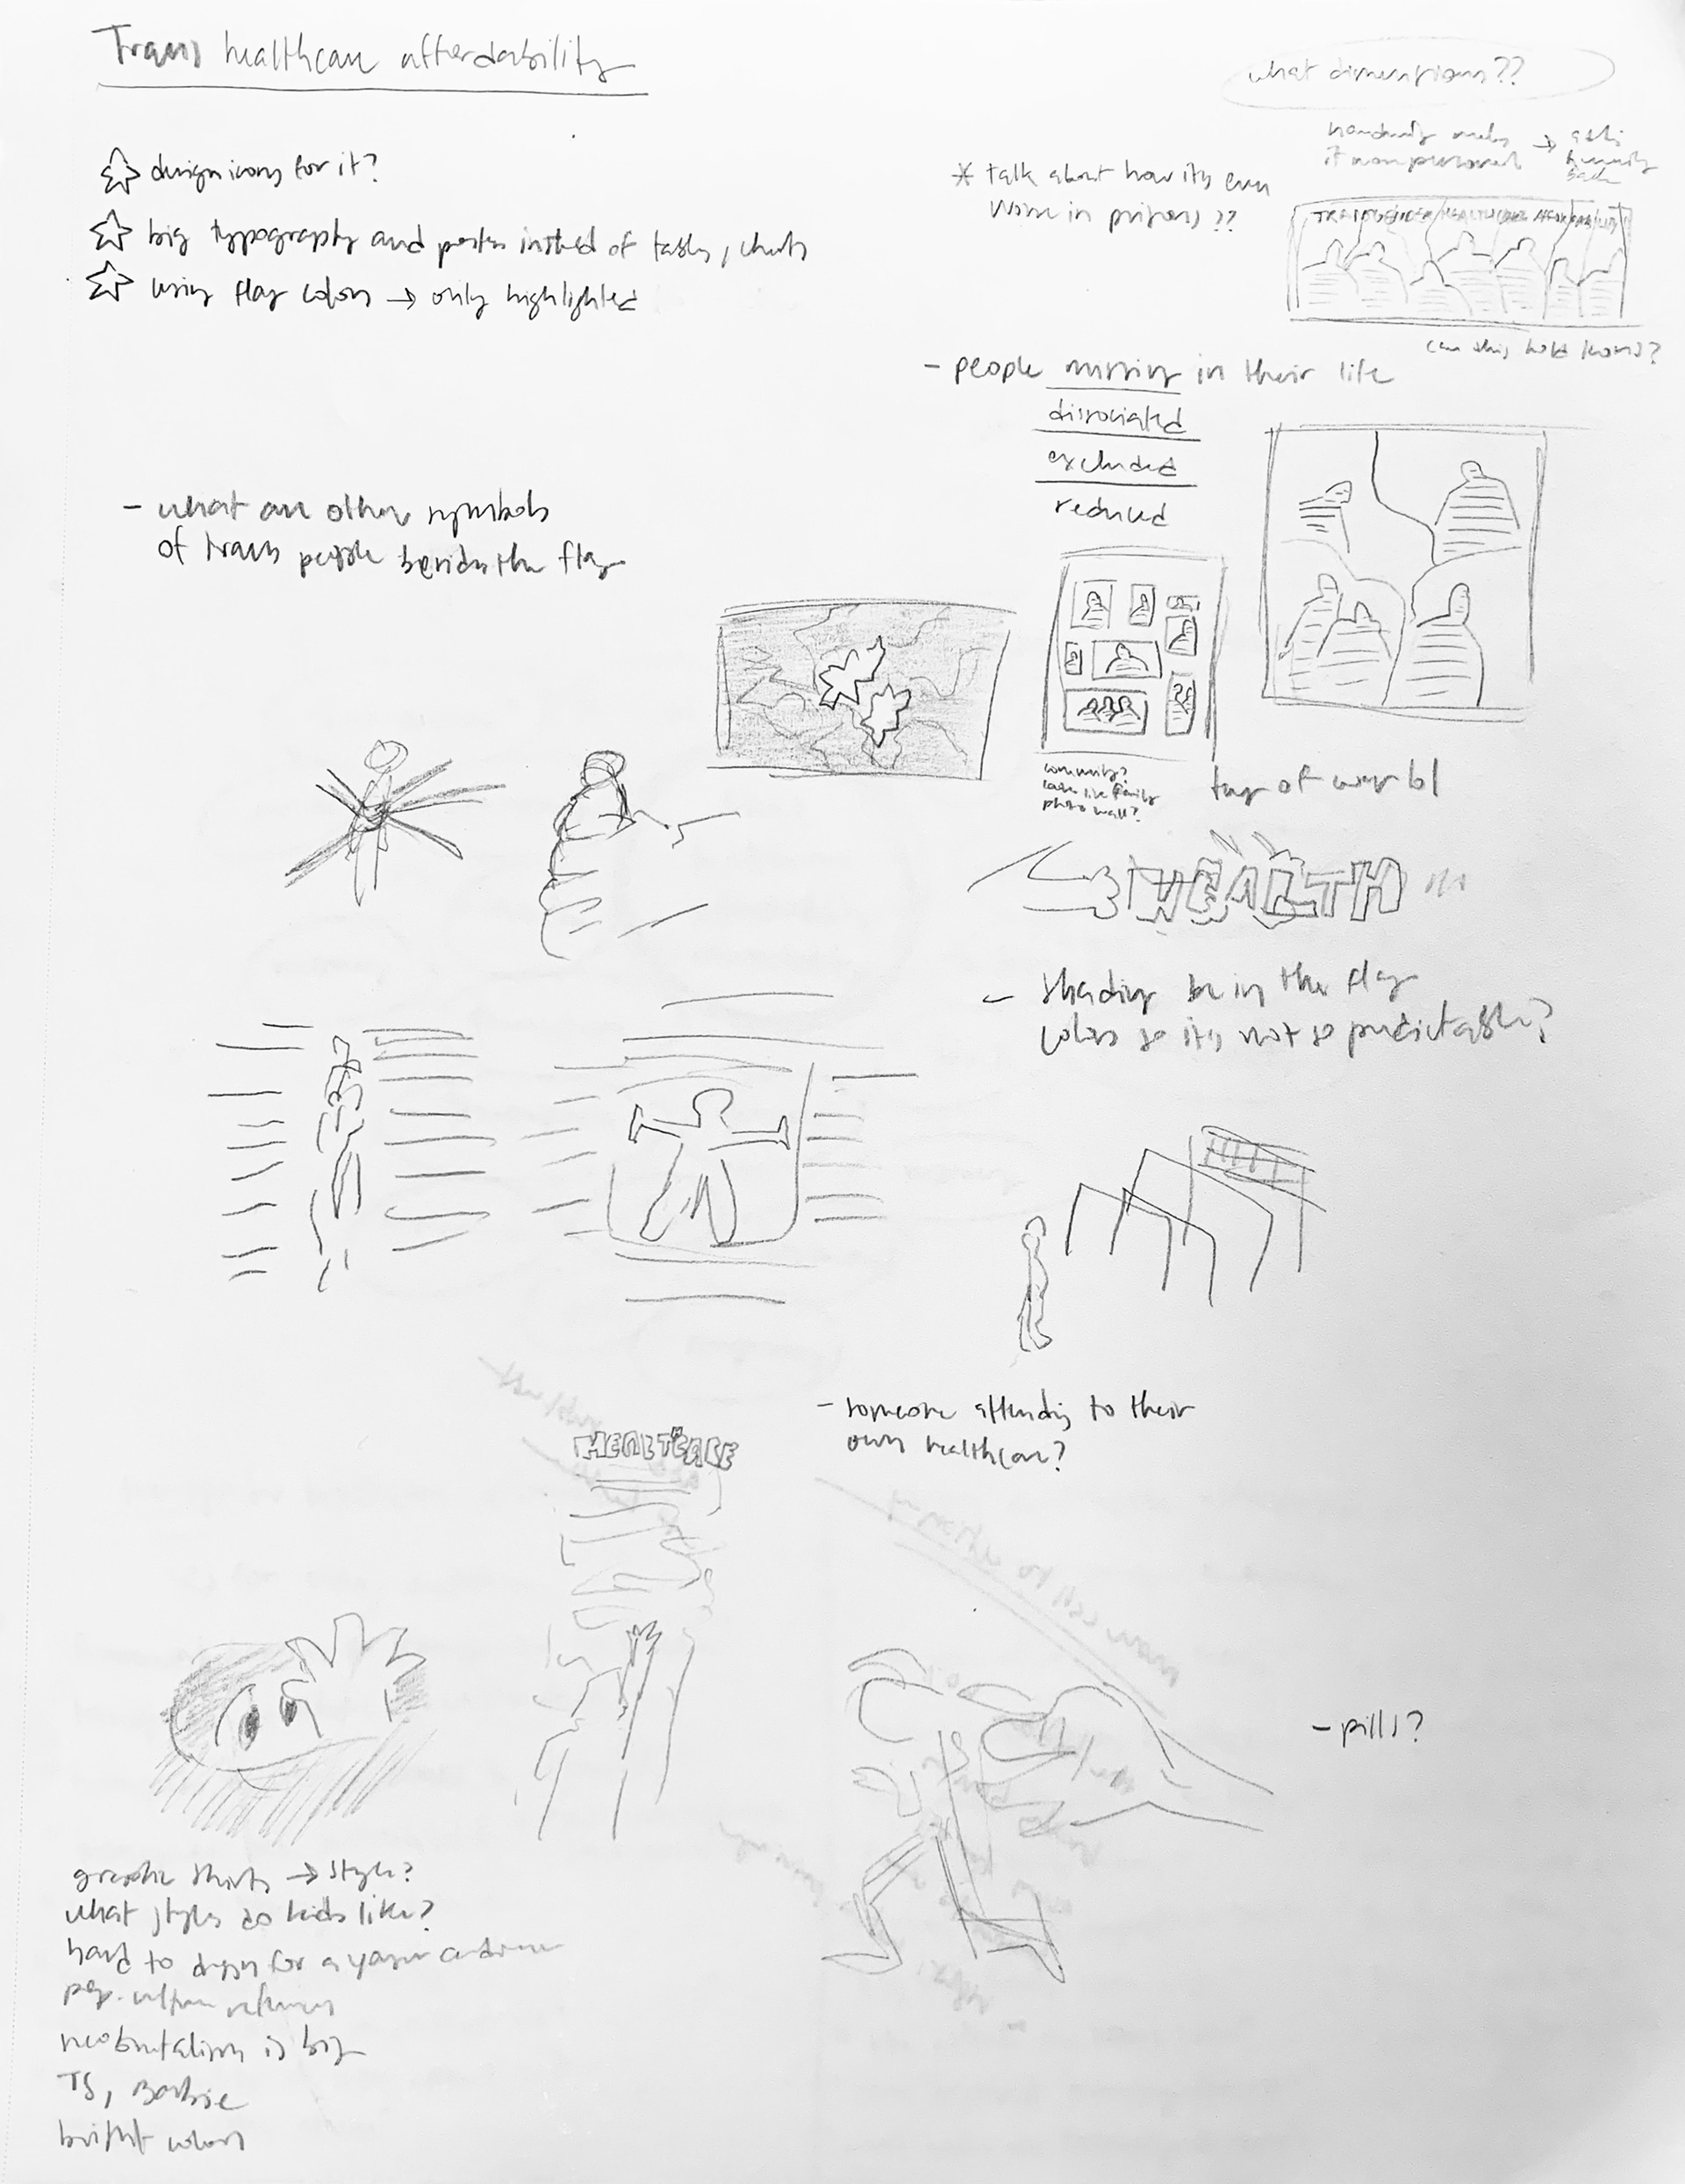 Trans healthcare affordability
what dimensions??
design icons for it?
big typography and poster insted of tables, charts
using flag colors → only highlighted
* talk about how its even
worse in prisons ??
it more personal
TRANSGENDER HEALTHCARE AFFORDABILITY
can this hold icons?
- people missing in their life
dissociated
excluded
reduced
- what are other symbols
of trans people besides the flag
community?
looks like family
photo wall?
tug of war bl
HEALTH
- shading be in the flag
colors so its not so predictable?
- someone attending to their
own healthcare?
HEALTHCARE
- pills?
graphic shirts → style?
what styles do kids like?
hard to design for a
pop culture references
neobrutalism is big
TS, Barbie
bright colors